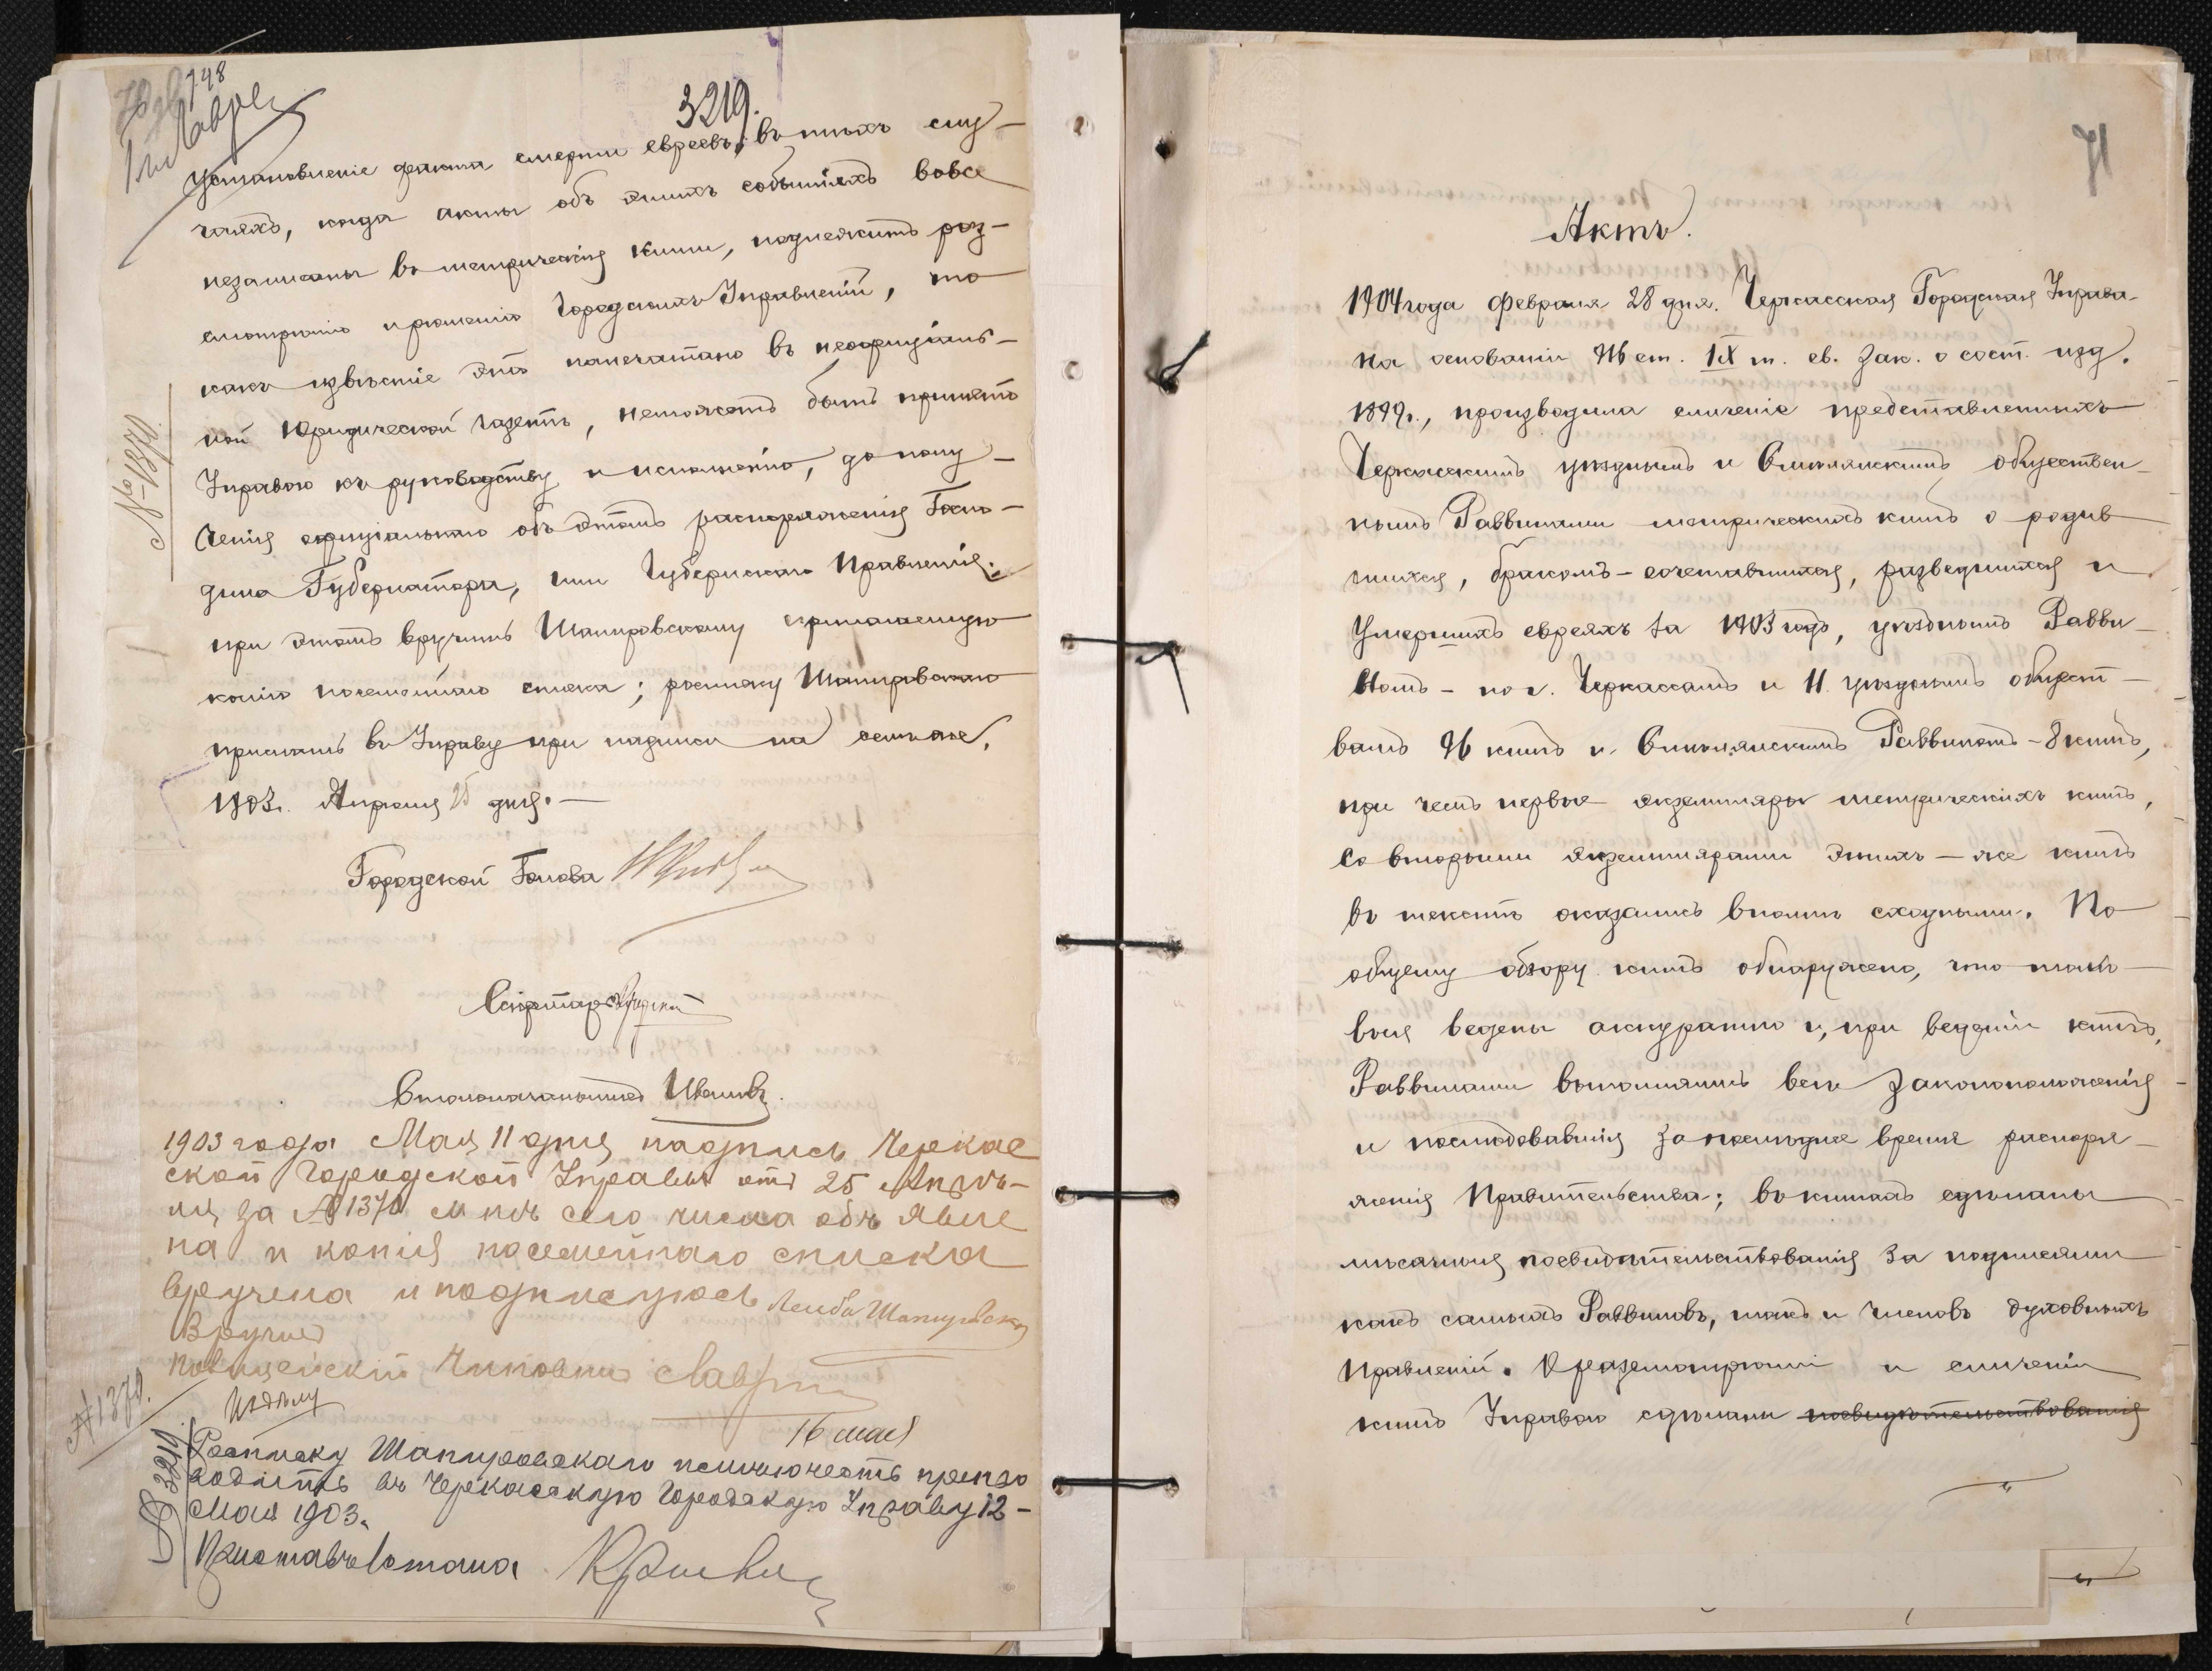 748
3219.
установленіе факта смерти евреевъ, въ тѣхъ слу-
чаяхъ, когда акты объ этихъ событіяхъ вовсе
незаписаны въ метрическія книги, подлежитъ раз-
смотрѣнію и рѣшенію Городскихъ Управленій, то
какъ извѣстіе это напечатано въ неофиціаль-
ной Юридической газетѣ, неможетъ быть принято
Управою къ руководству и исполненію, до полу-
ченія официальнаго объ этомъ распоряженія Госпо-
дина Губернатора, или Губернскаго Правленія.
при этомъ вручить Шапировскому прилагаемую
копію посемейнаго списка; росписку Шапировскаго
прислать въ Управу при надписи на семъ же.
1903 г. Апрѣля 25 дня.—
№ 1370.
Городской Голова
Секретарь
Столоначальникъ Ивановъ.
1903 года Мая 11 дня надпись Черкас
ской Городской Управы отъ 25 Апрѣ-
ля за № 1370 мнѣ сего числа объявле
на и копія посемейнаго списка
вручена и подписуюсь Лейба Шапировскій
Вручилъ
Полицейскій Чиновникъ
№ 1370.
Къ дѣлу
16 мая
№ 3219.
Росписку Шапировскаго полиція честь препро
водитъ въ Черкасскую Городскую Управу 12-
Мая 1903 г.
Приставъ 1 стана
71
Актъ.
1904 года Февраля 28 дня. Черкасская Городская Управа
на основаніи 916 ст. IX т. св. зак. о сост. изд.
1899 г., производила сличеніе представленныхъ
Черкасскимъ уѣзднымъ и Смѣлянскимъ обществен-
нымъ Раввинами метрическихъ книгъ о родив
шихся, бракомъ-сочетавшихся, разведшихся и
Умершихъ евреяхъ за 1903 годъ, уѣзднымъ Равви-
номъ - по г. Черкассамъ и 11 уѣзднымъ общест-
вамъ 96 книгъ и Смѣлянскимъ Раввиномъ - 8 книгъ,
при чемъ первые экземпляры метрическихъ книгъ,
со вторыми экземплярами этихъ-же книгъ
въ текстѣ оказались вполнѣ сходными. По
общему обзору книгъ обнаружено, что тако-
выя ведены аккуратно и, при веденіи книгъ,
Раввинами выполнялись всѣ законоположенія
и послѣдовавшія за послѣднее время распоря-
женія Правительства; въ книгахъ сдѣланы
мѣсячныя посвидѣтельствованія за подписями
какъ самихъ Раввиновъ, такъ и членовъ духовныхъ
Правленій. О разсмотрѣніи и сличеніи
книгъ Управою сдѣланы посвидѣтельствованія